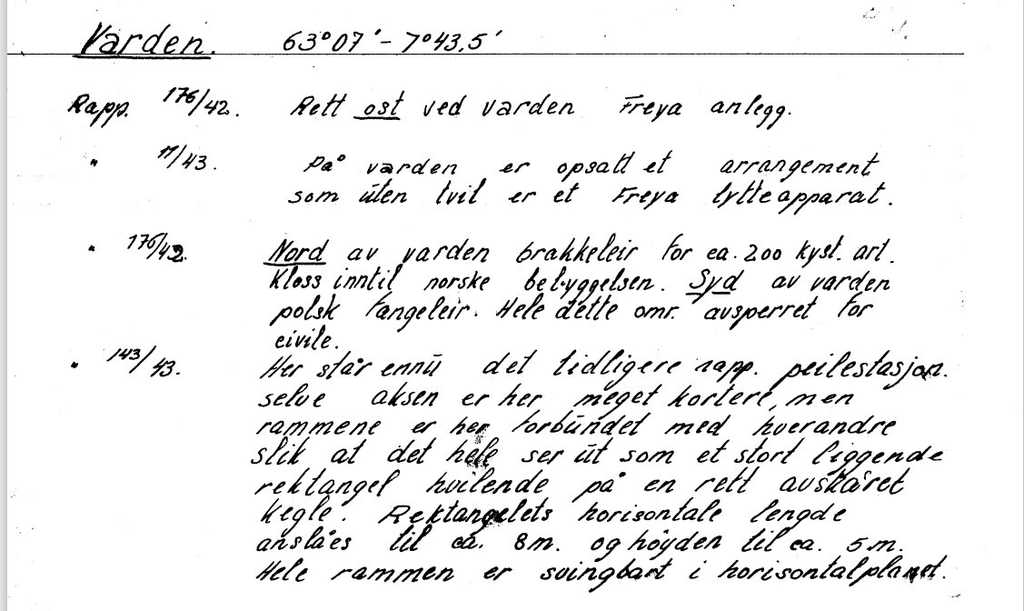 Varden. 63°07' - 7°43,5'
Rapp. 176/42. Rett ost ved varden Freya anlegg.
" 11/43. På varden er opsatt et arrangement
som uten tvil er et Freya lytteapparat.
" 176/42. Nord av varden brakkeleir for ca. 200 kyst. art.
Kloss inntil norske bebyggelsen. Syd av varden
polsk fangeleir. Hele dette omr. avsperret for
civile.
" 143/43. Her står ennu det tidligere rapp. peilestasjon.
selve aksen er her meget kortere, men
rammene er her forbundet med hverandre
slik at det hele ser ut som et stort liggende
rektangel hvilende på en rett avskåret
kegle. Rektangelets horisontale lengde
anslåes til ca. 8m. og høyden til ca. 5m.
Hele rammen er svingbart i horisontalplanet.